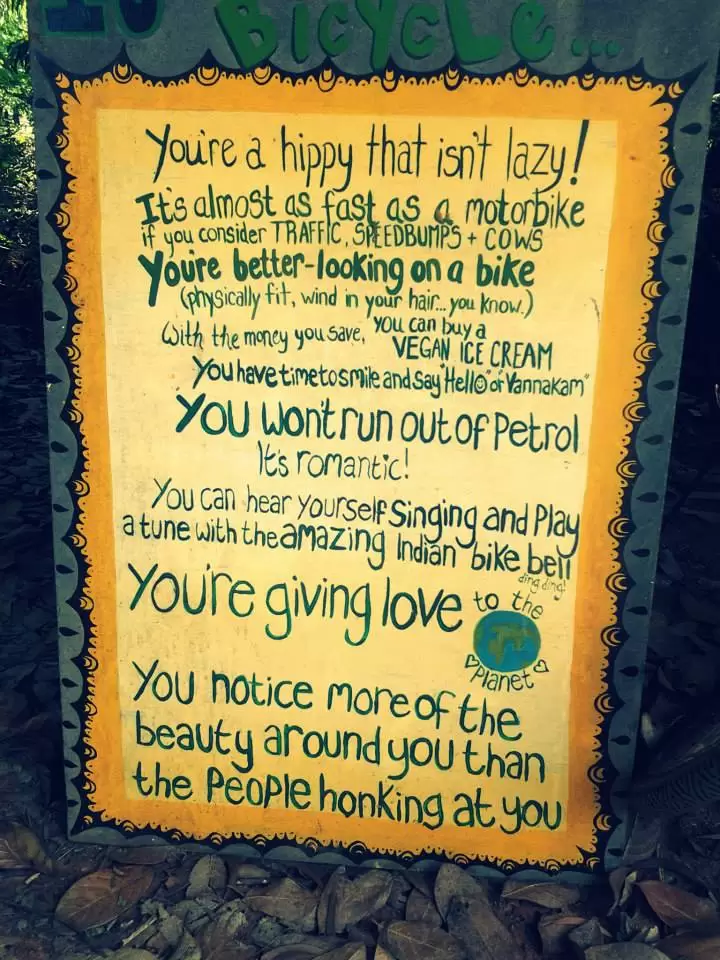 Bicycle...
You're a hippy that isn't lazy!
It's almost as fast as a motorbike
if you consider TRAFFIC, SPEEDBUMPS + COWS
You're better-looking on a bike
(physically fit, wind in your hair... you know.)
With the money you save, you can buy a
VEGAN ICE CREAM
You have time to smile and say "Hello" or "Vannakam"
You won't run out of Petrol
It's romantic!
You can hear yourself Singing and Play
a tune with the amazing Indian bike bell
ding ding!
You're giving love to the
Planet
You notice more of the
beauty around you than
the People honking at you